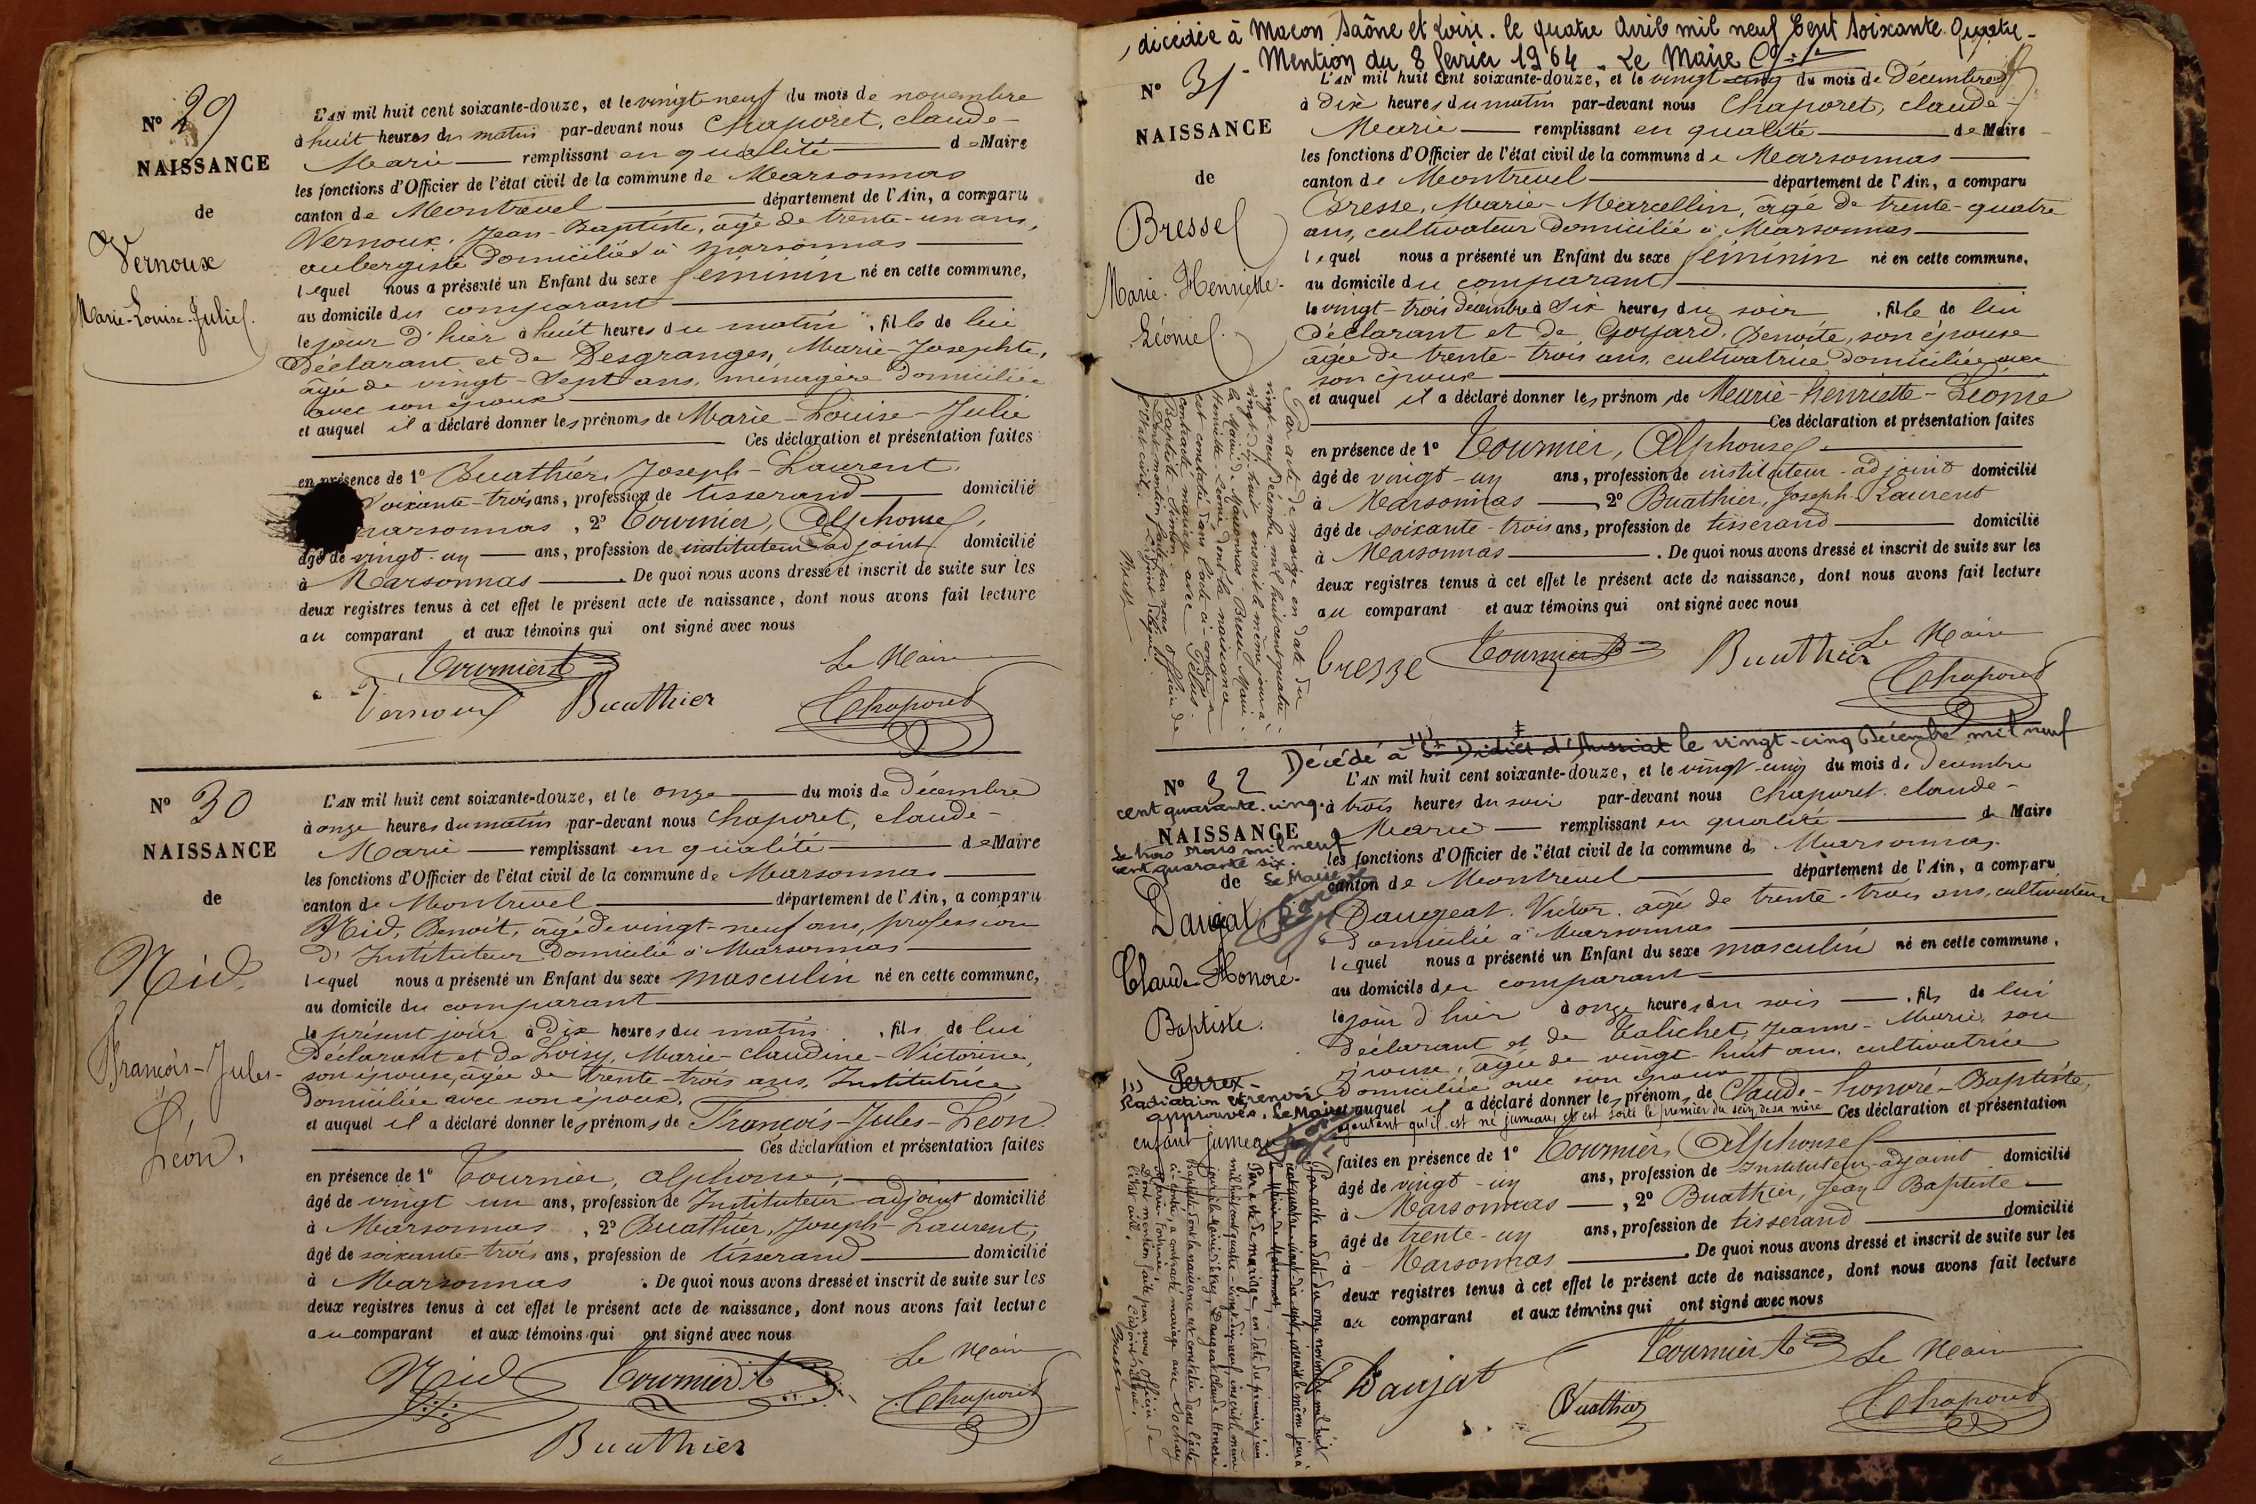 N° 29
NAISSANCE
de
Vernoux
Marie-Louise-Julie
L'AN mil huit cent soixante-douze, et le vingt-neuf du mois de novembre
à huit heures du matin par-devant nous Chaporet, claude-
Marie remplissant en qualité de Maire
les fonctions d'Officier de l'état civil de la commune de Marsonnas
canton de Montrevel département de l'Ain, a comparu
Vernoux, Jean-Baptiste, âgé de trente-un ans,
aubergiste domicilié à marsonnas
lequel nous a présenté un Enfant du sexe féminin né en cette commune,
au domicile du comparant
le jour d'hier à huit heures du matin, fille de lui
Déclarant et de Desgranges, Marie-Josephte,
âgée de vingt-sept ans, ménagère domiciliée
avec son époux
et auquel il a déclaré donner les prénoms de Marie-Louise-Julie
Ces déclaration et présentation faites
en présence de 1° Buathier, Joseph-Laurent,
soixante-trois ans, profession de tisserand domicilié
marsonnas, 2° Tournier, Alphonse,
âgé de vingt-un ans, profession de instituteur adjoint domicilié
à Marsonnas. De quoi nous avons dressé et inscrit de suite sur les
deux registres tenus à cet effet le présent acte de naissance, dont nous avons fait lecture
au comparant et aux témoins qui ont signé avec nous
Tournier A Le Maire
Vernoux Buathier Chaporet
N° 30
NAISSANCE
de
Nid
François-Jules-
Léon.
L'AN mil huit cent soixante-douze, et le onze du mois de Décembre
à onze heures du matin par-devant nous Chaporet, claude-
Marie remplissant en qualité de Maire
les fonctions d'Officier de l'état civil de la commune de Marsonnas
canton de Montrevel département de l'Ain, a comparu
Nid, Benoit, âgé de vingt-neuf ans, profession
d'Instituteur domicilié à Marsonnas
lequel nous a présenté un Enfant du sexe masculin né en cette commune,
au domicile du comparant
le présent jour à dix heures du matin, fils de lui
Déclarant et de Loisy, Marie-claudine-Victorine,
son épouse, âgée de trente-trois ans, Institutrice
domiciliée avec son époux.
et auquel il a déclaré donner les prénoms de François-Jules-Léon.
Ces déclaration et présentation faites
en présence de 1° Tournier, alphonse,
âgé de vingt un ans, profession de Instituteur adjoint domicilié
à Marsonnas, 2° Buathier, Joseph-Laurent,
âgé de soixante-trois ans, profession de tisserand domicilié
à Marsonnas. De quoi nous avons dressé et inscrit de suite sur les
deux registres tenus à cet effet le présent acte de naissance, dont nous avons fait lecture
au comparant et aux témoins qui ont signé avec nous
Nid Tournier A Le Maire
Buathier Chaporet
décédée à Macon Saône et Loire. le quatre Avril mil neuf Cent Soixante. Quatre-
Mention du 8 fevrier 1964. Le Maire
N° 31
NAISSANCE
de
Bresse
Marie-Henriette-
Léonie
L'AN mil huit cent soixante-douze, et le vingt-cinq du mois de Décembre
à Dix heures du matin par-devant nous Chaporet, claude-
Marie remplissant en qualité de Maire
les fonctions d'Officier de l'état civil de la commune de Marsonnas
canton de Montrevel département de l'Ain, a comparu
Bresse, Marie-Marcellin, âgé de trente-quatre
ans, cultivateur domicilié à Marsonnas
lequel nous a présenté un Enfant du sexe féminin né en cette commune,
au domicile du comparant
le vingt-trois décembre à six heures du soir, fille de lui
Déclarant et de Goyard, Benoite, son épouse
âgée de trente-trois ans, cultivatrice domiciliée avec
son époux
et auquel il a déclaré donner les prénom de Marie-henriette-Léonie
Ces déclaration et présentation faites
en présence de 1° Tournier, Alphonse
âgé de vingt-un ans, profession de instituteur-adjoint domicilié
à Marsonnas 2° Buathier, Joseph-Laurent
âgé de soixante-trois ans, profession de tisserand domicilié
à Marsonnas. De quoi nous avons dressé et inscrit de suite sur les
deux registres tenus à cet effet le présent acte de naissance, dont nous avons fait lecture
au comparant et aux témoins qui ont signé avec nous
Par acte de mariage en date du
vingt-neuf décembre mil huit cent quatre
vingt-dix-huit, inscrit le même jour à
la Mairie de Marsonnas, Bresse Marie
Henriette-Léonie dont la naissance
est constatée dans l'acte ci-contre a
contracté mariage avec
Baptiste
Dont mention faite par nous, officier de
l'état civil.
Bresse Tournier A Buathier Le Maire
Chaporet
Décédé à St Didier d'Aussiat le vingt-cinq Décembre mil neuf
cent quarante-cinq.
le trois mars mil neuf
cent quarante six.
Le Maire
N° 32
NAISSANCE
de
Daujat
Claude-Honoré-
Baptiste.
(1) Perrex-
Radiation et renvoi
approuvés. Le Maire
enfant jumeau
L'AN mil huit cent soixante-douze, et le vingt-cinq du mois de Decembre
à trois heures du soir par-devant nous Chaporet, claude-
Marie remplissant en qualité de Maire
les fonctions d'Officier de l'état civil de la commune de Marsonnas
canton de Montrevel département de l'Ain, a comparu
Daugeat, Victor, âgé de trente-trois ans, cultivateur
domicilié à Marsonnas
lequel nous a présenté un Enfant du sexe masculin né en cette commune,
au domicile du comparant
le jour d'hier à onze heures du soir, fils de lui
déclarant et de Talichet, Jeanne-Marie, son
épouse, âgée de vingt-huit ans, cultivatrice
domiciliée avec son époux
et auquel il a déclaré donner les prénoms de Claude-honoré-Baptiste,
ajoutant qu'il est né jumeau et est sorti le premier du sein de sa mère Ces déclaration et présentation
faites en présence de 1° Tournier, Alphonse
âgé de vingt-un ans, profession de Instituteur-adjoint domicilié
à Marsonnas, 2° Buathier, Jean-Baptiste
âgé de trente-un ans, profession de tisserand domicilié
à Marsonnas. De quoi nous avons dressé et inscrit de suite sur les
deux registres tenus à cet effet le présent acte de naissance, dont nous avons fait lecture
au comparant et aux témoins qui ont signé avec nous
Par acte en date du onze novembre mil huit
Par acte de mariage en date du premier juin
mil huit cent quatre-vingt-dix-neuf, inscrit le même
jour à la Mairie d'Étrez, Daugeat Claude Honoré
Baptiste dont la naissance est constatée dans l'acte
ci-contre, a contracté mariage avec
Dont mention faite par nous, Officier de
l'état civil.
Daujat Tournier A Le Maire
Buathier Chaporet